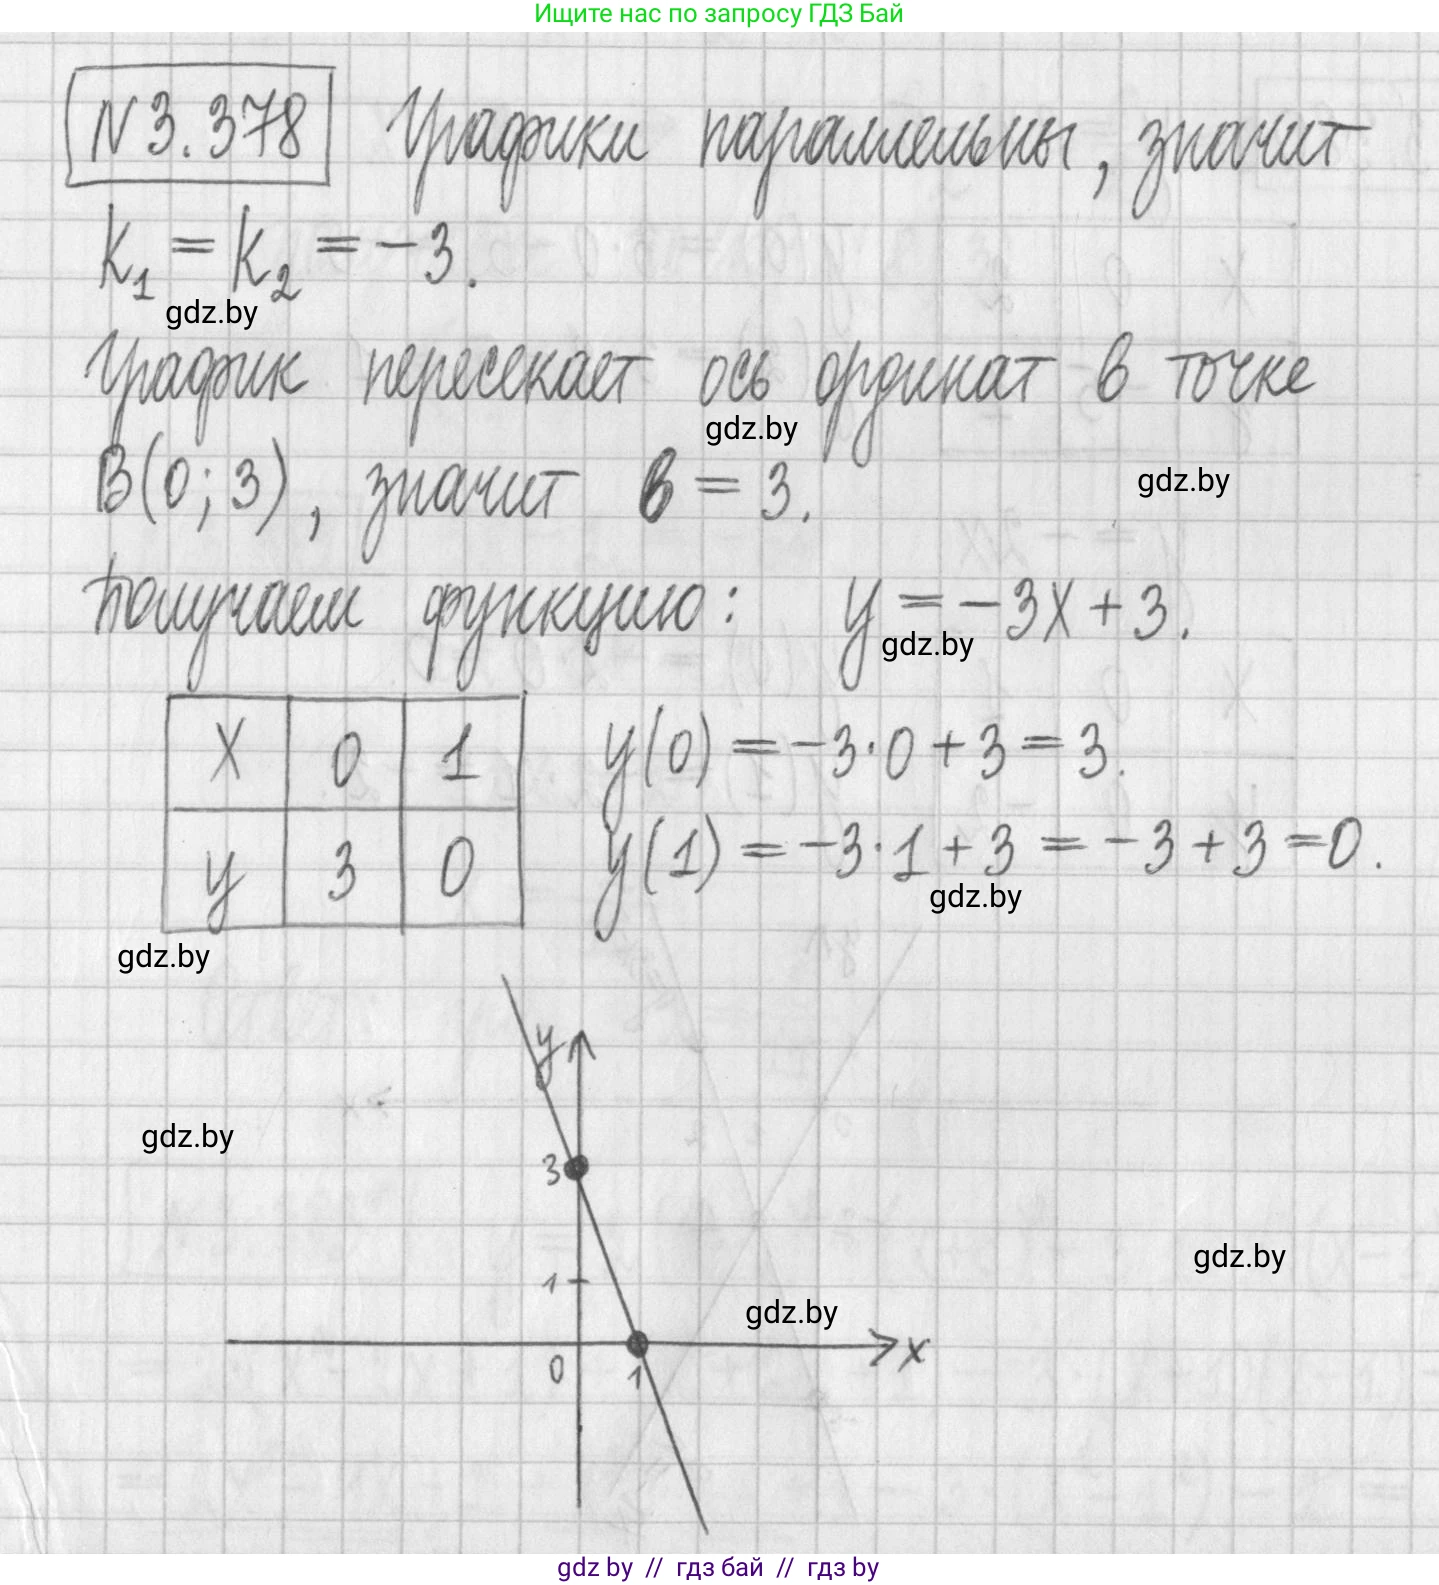 Ищите нас по запросу ГДЗ Бай
N3.378 Графики параллельны, значит
K₁ = K₂ = -3.
gdz.by
График пересекает ось ординат в точке
gdz.by
B(0; 3), значит b = 3.
gdz.by
Получаем функцию: y = -3x + 3.
gdz.by
x 0 1
y 3 0
y(0) = -3·0 + 3 = 3.
y(1) = -3·1 + 3 = -3 + 3 = 0.
gdz.by
gdz.by
y
gdz.by
3
gdz.by
1
gdz.by
x
0 1
gdz.by // гдз бай // гдз by